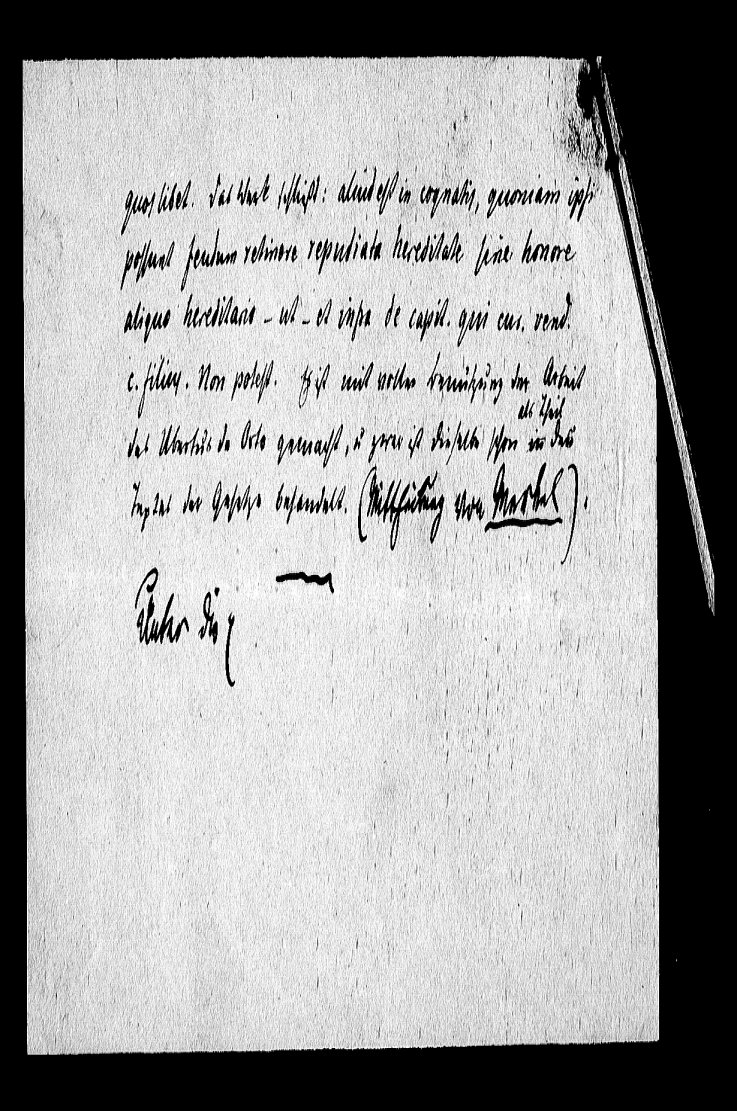 quos libet. Das Werk schließt: aliud est in cognatis, quoniam ipsi
possunt feudum retinere repudiata hereditate sine honore
aliquo hereditario – ut – et infra de capit. qui cur. vend.
c. filius. Non potest. Es ist mit voller Benutzung der Arbeit
als Theil
des Obertus de Orto gemacht, u zwar ist dieselbe schon des
Textes der Gesetze behandelt. (Mittheilung von Merkel).
Unter die